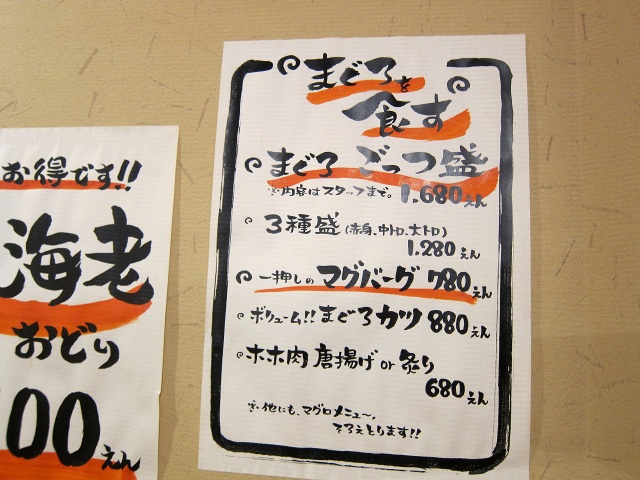 お得です!!
海老
おどり
00えん
まぐろを
食す
まぐろ ごっつ盛
※内容はスタッフまで。 1.680えん
3種盛(赤身、中トロ、大トロ)
1.280えん
一押しの マグバーグ 780えん
ボリューム!! まぐろカツ 880えん
ホホ肉 唐揚げ or 炙り
680えん
※他にも、マグロメニュ〜、
そろえとります!!